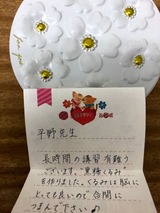 for you
平野先生
長時間の講習有難う
ございます。黒糖くるみ
を作りました。くるみは脳に
とても良いので合間に
つまんで下さい♪